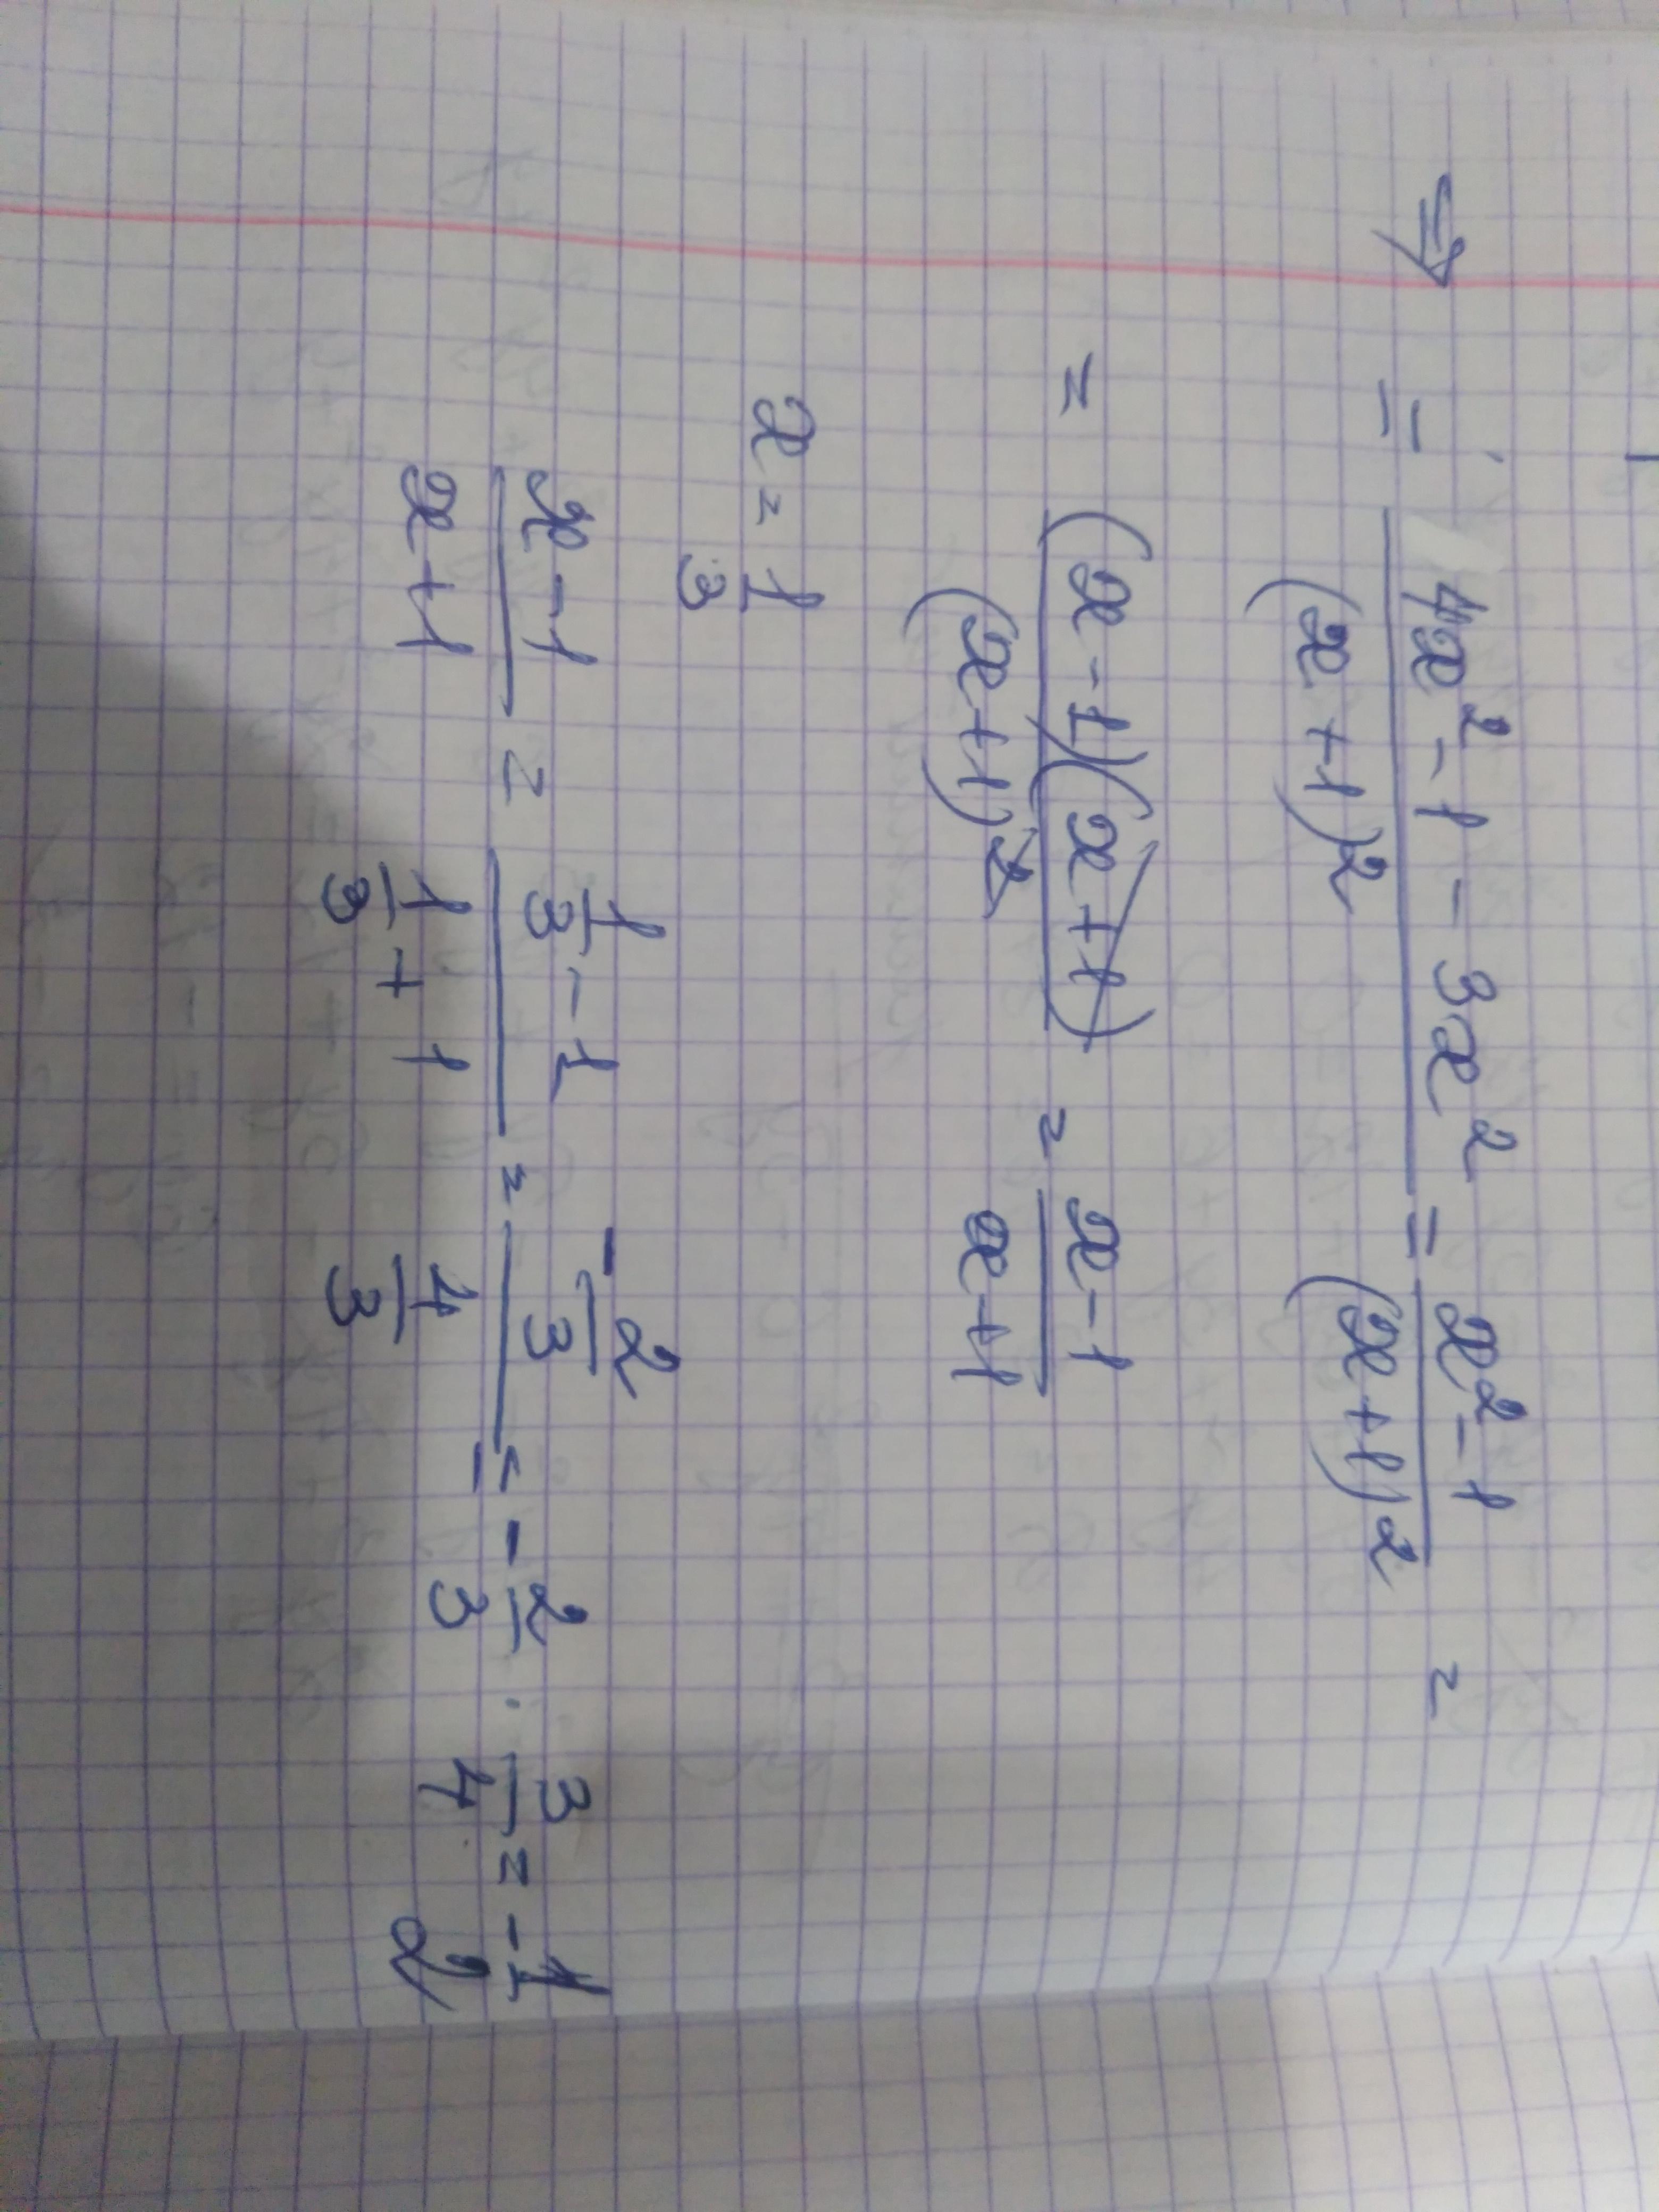 ⇒ = (4x² - 1 - 3x²)/(x+1)² = (x² - 1)/(x+1)² =
= (x-1)(x+1)/(x+1)² = (x-1)/(x+1)
x = 1/3
(x-1)/(x+1) = (1/3 - 1)/(1/3 + 1) = (-2/3)/(4/3) = -2/3 · 3/4 = -1/2